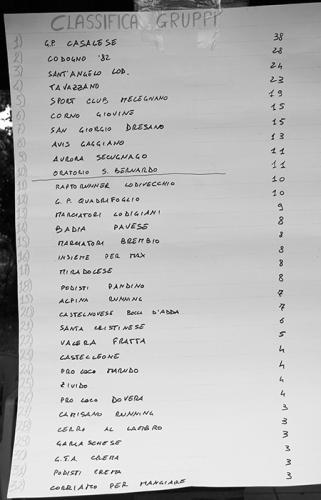 CLASSIFICA GRUPPI
1) G.P. CASALESE 38
2) CODOGNO '82 28
3) SANT'ANGELO LOD. 24
4) TAVAZZANO 23
5) SPORT CLUB MELEGNANO 19
6) CORNO GIOVINE 15
7) SAN GIORGIO DRESANO 15
8) AVIS GAGGIANO 13
9) AURORA SECUGNAGO 11
10) ORATORIO S. BERNARDO 11
RAPTORUNNER LODIVECCHIO 10
G.P. QUADRIFOGLIO 10
MARCIATORI LODIGIANI 9
BADIA PAVESE 8
MARCIATORI BREMBIO 8
INSIEME PER MAX 8
MIRADOLESE 8
PODISTI PANDINO 8
ALPINA RUNNING 7
CASTELNOVESE BOCCA D'ADDA 7
SANTA CRISTINESE 6
VALERA FRATTA 5
CASTELLEONE 4
PRO LOCO MARUDO 4
ZIVIDO 4
PRO LOCO DOVERA 4
CAMISANO RUNNING 3
CERRO AL LAMBRO 3
GARLASCHESE 3
G.T.A CREMA 3
PODISTI CREMA 3
CORRIAMO PER MANGIARE 3